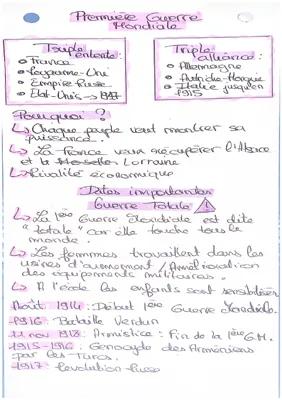 Premiere Guerre
Mondiale
Triple
entente:
• France
• Royaume-Uni
• Empire Russe
• Etat-Unis → 1917
Triple
alliance:
• Allemagne
• Autriche-Hongrie
• Italie jusqu'en
1915
Pourquoi ?
↳ Chaque peuple veut montrer sa
puissance.
↳ La France veut récupérer l'Alsace
et la Moselle Lorraine
↳ Rivalité économique
Dates importantes
Guerre Totale
↳ La 1ère Guerre Mondiale est dite
"totale" car elle touche tous le
monde.
↳ Les femmes travaillent dans les
usines d'armement / Amélioration
des équipements militaires.
↳ A l'école les enfants sont sensibilisés
Août 1914: Début 1ère Guerre Mondiale.
-1916: Bataille Verdun
-11 nov 1918: Armistice: Fin de la 1ère G.M.
-1915-1916: Génocyde des Arméniens
par les Turcs.
-1917: Revolution Russe